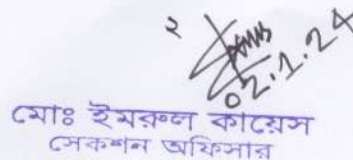 ২
02.1.24
মোঃ ইমরুল কায়েস
সেকশন অফিসার